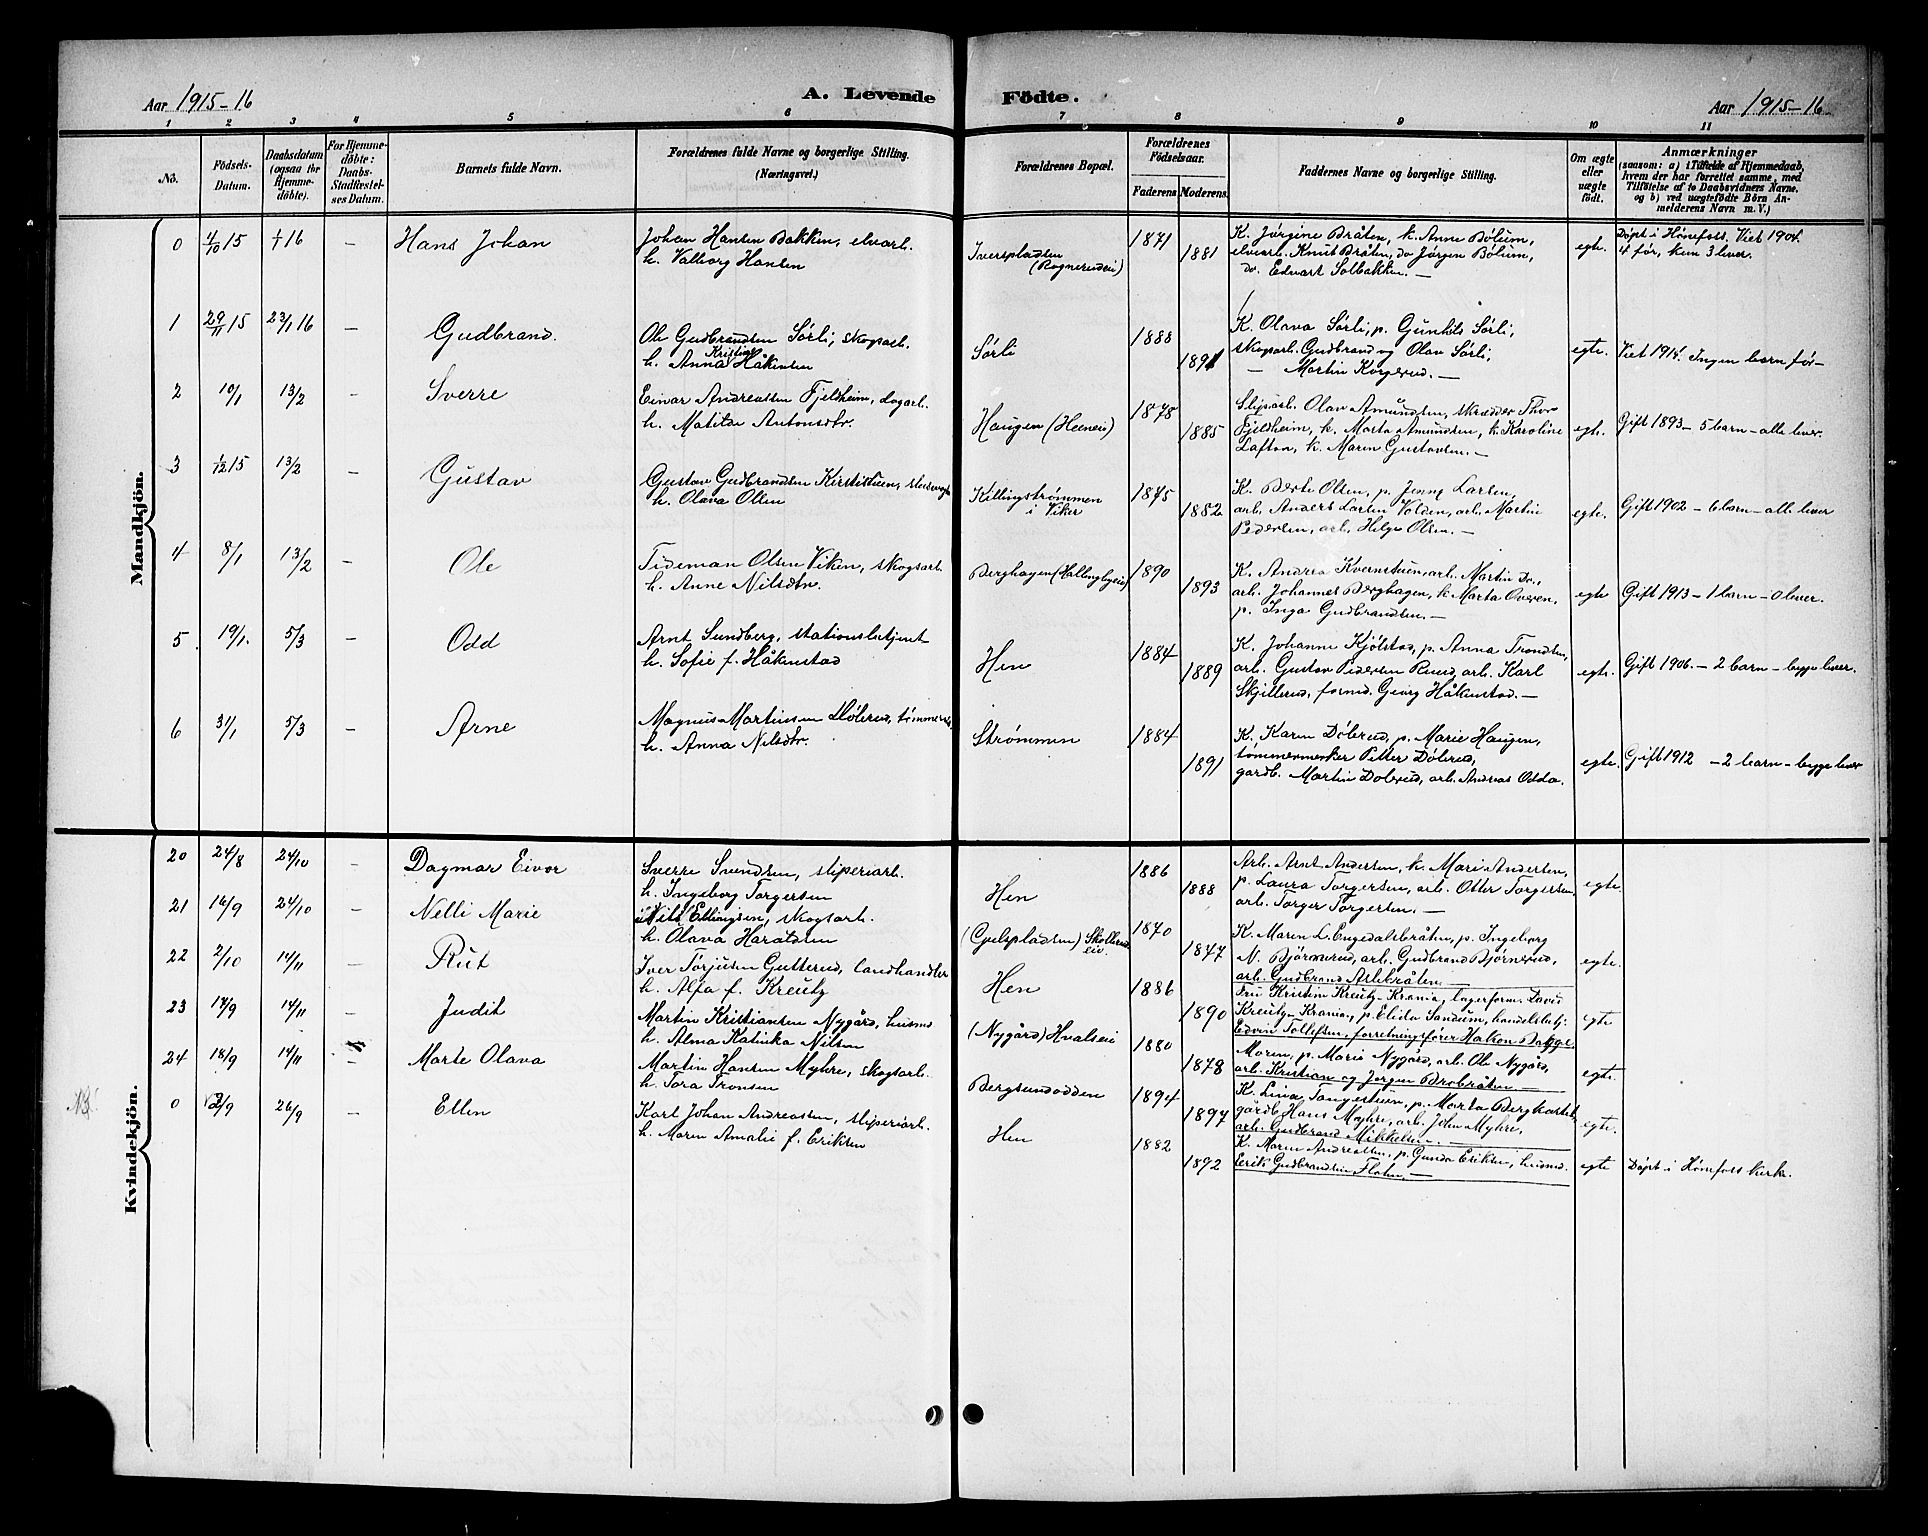 Aar 1915-16
A. Levende
Födte.
Aar 1915-16
1 2 3 4 5 6 7 8 9 10 11
No.
Födsels-Datum.
Daabsdatum (ogsaa for Hjemmedøbte).
For Hjemmedøbte: Daabs-Stadfæstelses Datum.
Barnets fulde Navn.
Forældrenes fulde Navne og borgerlige Stilling. (Næringsvei.)
Forældrenes Bopæl.
Forældrenes Födselsaar.
Faderens. Moderens.
Faddernes Navne og borgerlige Stilling.
Om ægte eller uægte födt.
Anmærkninger
(saasom: a) i Tilfælde af Hjemmedaab,
hvem der har forrettet samme, med
Tilføielse af to Daabsvidners Navne.
og b) ved uægtefödte Börn An-
melderens Navn m. V.)
Mandkjön.
0 4/10 15 1/1 16 — Hans Johan
Johan Hansen Bakken, elvarb.
h. Valborg Hansen
Iverspladsen
(Rognerudei)
1871
1881
K. Jørgine Bråten, k. Anne Bølum,
elvearb. Knut Bråten, do Jørgen Bølum,
do. Edvart Solbakken. —
egte.
Døpt i Hønefoss. Viet 1904.
4 før, kun 3 lever.
1 29/11 15 23/1 16 — Gudbrand.
Ole Gudbrandsen Sørli, skogsarb.
h. Anna Kristine Håkensen
Sørli
1888
1891
K. Olava Sørli, p. Gunhild Sørli,
skogsarb. Gudbrand og Olav Sørli,
— Martin Korperud. —
egte.
Viet 1914. Ingen barn før—
2 10/1 13/2 — Sverre
Einar Andreassen Fjeldheim, dagarb.
h. Matilde Antonsdtr.
Haugen (Heeneie)
1878
1885
Slipsarb. Olav Amundsen, skrædder Thor
Fjeldheim, k. Marta Amundsen, k. Karoline
Lafton, k. Maren Gustavsen. —
egte.
Gift 1893 — 5 barn — alle lever.
3 1/12 15 13/2 — Gustav
Gustav Gudbrandsen Kirstistuen, slusevogt
h. Olava Olsen
Killingstrømmen
i Viker
1875
1882
K. Berte Olsen, p. Jenny Larsen,
arb. Anders Larsen Volden, arb. Martin
Pedersen, arb. Helge Olsen. —
egte.
Gift 1902 — 6 barn — alle lever
4 8/1 13/2 — Ole
Tideman Olsen Viken, skogsarb.
h. Anne Nilsdtr.
Berghagen (Hallingbyeie)
1890
1893
K. Andrea Kvernstuen, arb. Martin Do.,
arb. Johannes Berghagen, k. Marta Overen,
p. Inga Gudbrandsen. —
egte
Gift 1913 — 1 barn — 0 lever.
5 19/1. 5/3 — Odd
Arnt Sundberg, stationsbetjent
h. Sofie f. Håkenstad
Hen
1884
1889
K. Johanne Kjølstad, p. Anna Trondsen,
arb. Gustav Pedersen Ruud, arb. Karl
Skjillerud, formd. Georg Håkenstad. —
egte.
Gift 1906 — 2 barn — begge lever.
6 31/1 5/3 — Arne
Magnus Martinsen Dølerud, tømmerm.
h. Anna Nilsdtr.
Strømmen
1884
1891
K. Karen Dølerud, p. Marie Haugen,
tømmermerker Petter Dølerud,
gardb. Martin Dølerud, arb. Andreas Odda.
egte.
Gift 1912 — 2 barn — begge lever
Kvindekjön.
20 24/8 24/10 — Dagmar Eivor
Sverre Svendsen, sliperiarb.
h. Ingeborg Torgersen
Hen
1886
1888
Arb. Arnt Andersen, k. Mari Andersen,
p. Laura Torgersen, arb. Otter Torgersen,
arb. Torger Torgersen. —
egte.
21 16/9 24/10 — Nelli Marie
Nils Ellingsen, skogsarb.
h. Olava Haraldsen
(Gjelspladsen) Skollerudeiv.
1870
1847
K. Maren L. Engedalsbråten, p. Ingeborg
N. Bjørnerud, arb. Gudbrand Bjørnerud,
arb. Gudbrand Aslebråten. —
egte.
22 2/10 14/11 — Rut
Iver Torjusen Gutterud, landhandler
h. Alfa f. Kreutz
Hen
1886
1890
Fru Kristin Kreutz-Krania, lagerform. David
Kreutz-Krania, p. Elida Sandum, handelsbetj.
Edvin Tollefsen, forretningsfører Hakon Bagge.
egte
23 17/9 14/11 — Judit
Martin Kristiansen Nygård, husmd
h. Alma Katinka Nilsen
(Nygård) Hvalseie
1880
1878
Moren, p. Marie Nygård, arb. Ole Nygård,
arb. Kristian og Jørgen Brobråten. —
egte.
24 18/9 14/11 — Marte Olava
Martin Hansen Myhre, skogsarb.
h. Tora Tronsen
Bergsundodden
1894
1897
K. Lina Tangestuen, p. Marta Bergkastet,
gårdb. Hans Myhre, arb. John Myhre,
arb. Gudbrand Mikkelsen. —
egte.
NB.
0 2/9 26/9 — Ellen
Karl Johan Andreassen, sliperiarb.
h. Maren Amalie f. Eriksen
Hen
1882
1892
K. Maren Andreassen, p. Gunda Eriksen, husmd.
Eerik Gudbrandsen Flaten. —
egte
Døpt i Hønefoss kirke.